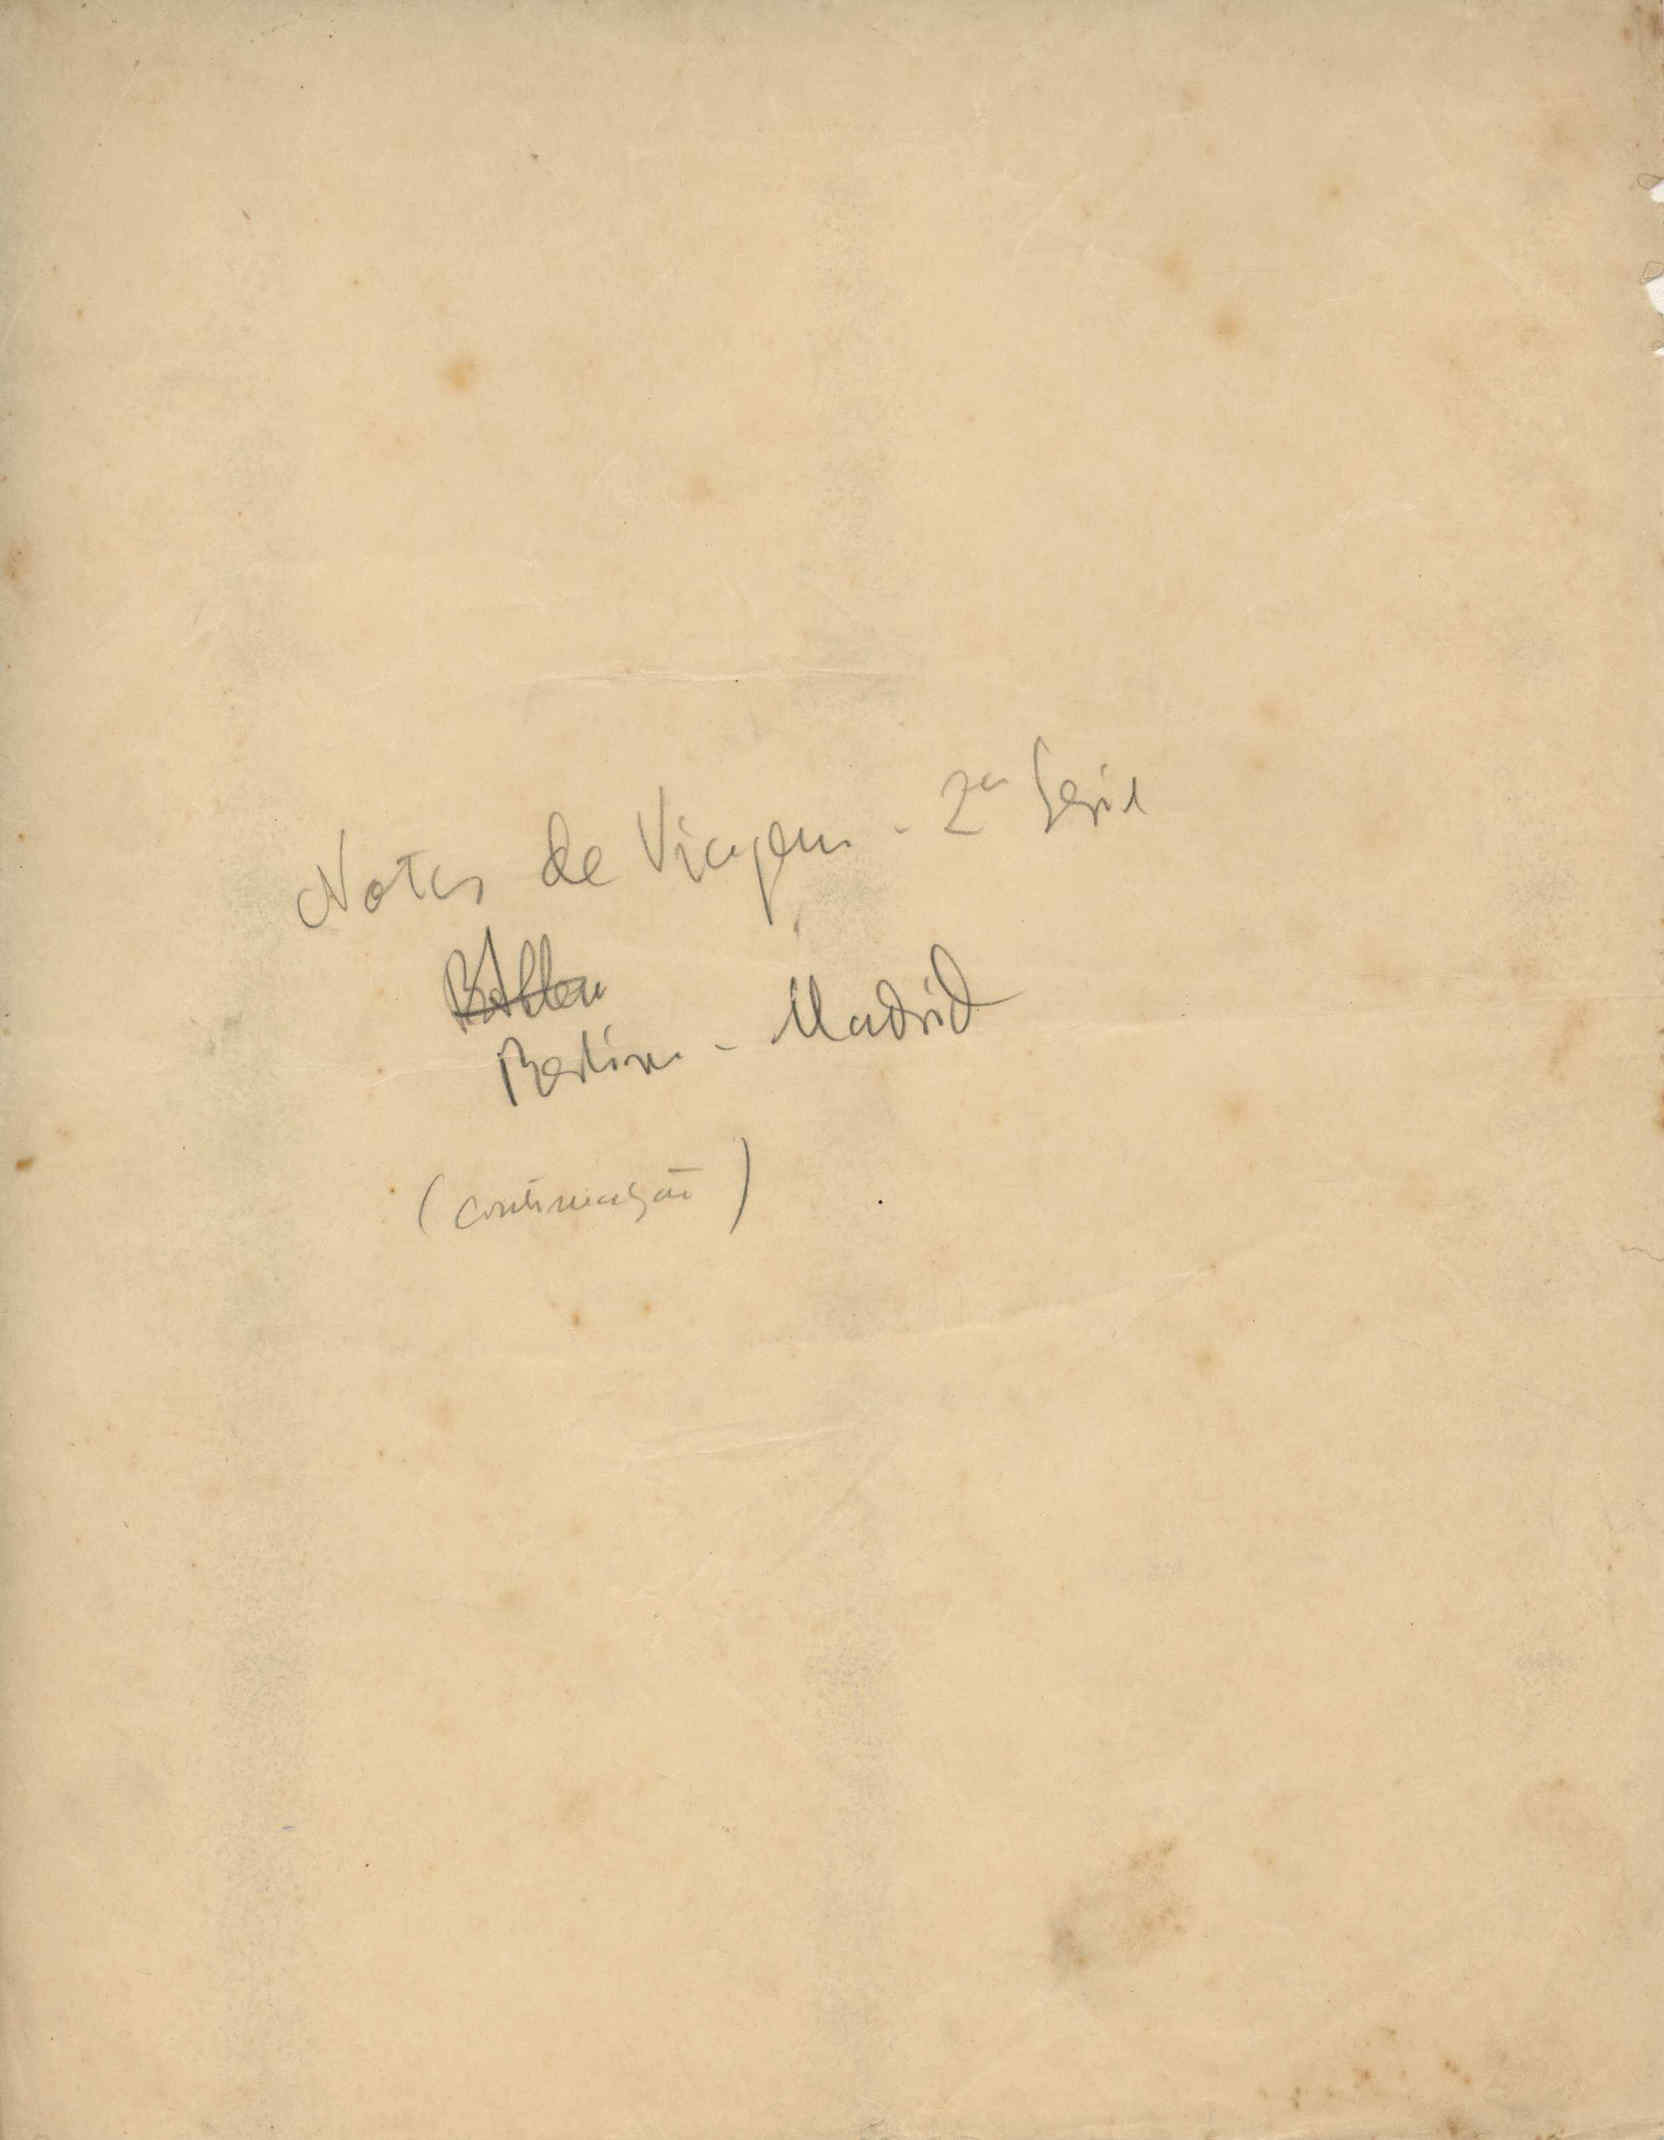 Notas de Viagem - 2ª Serie
Berlim - Madrid
(continuação)